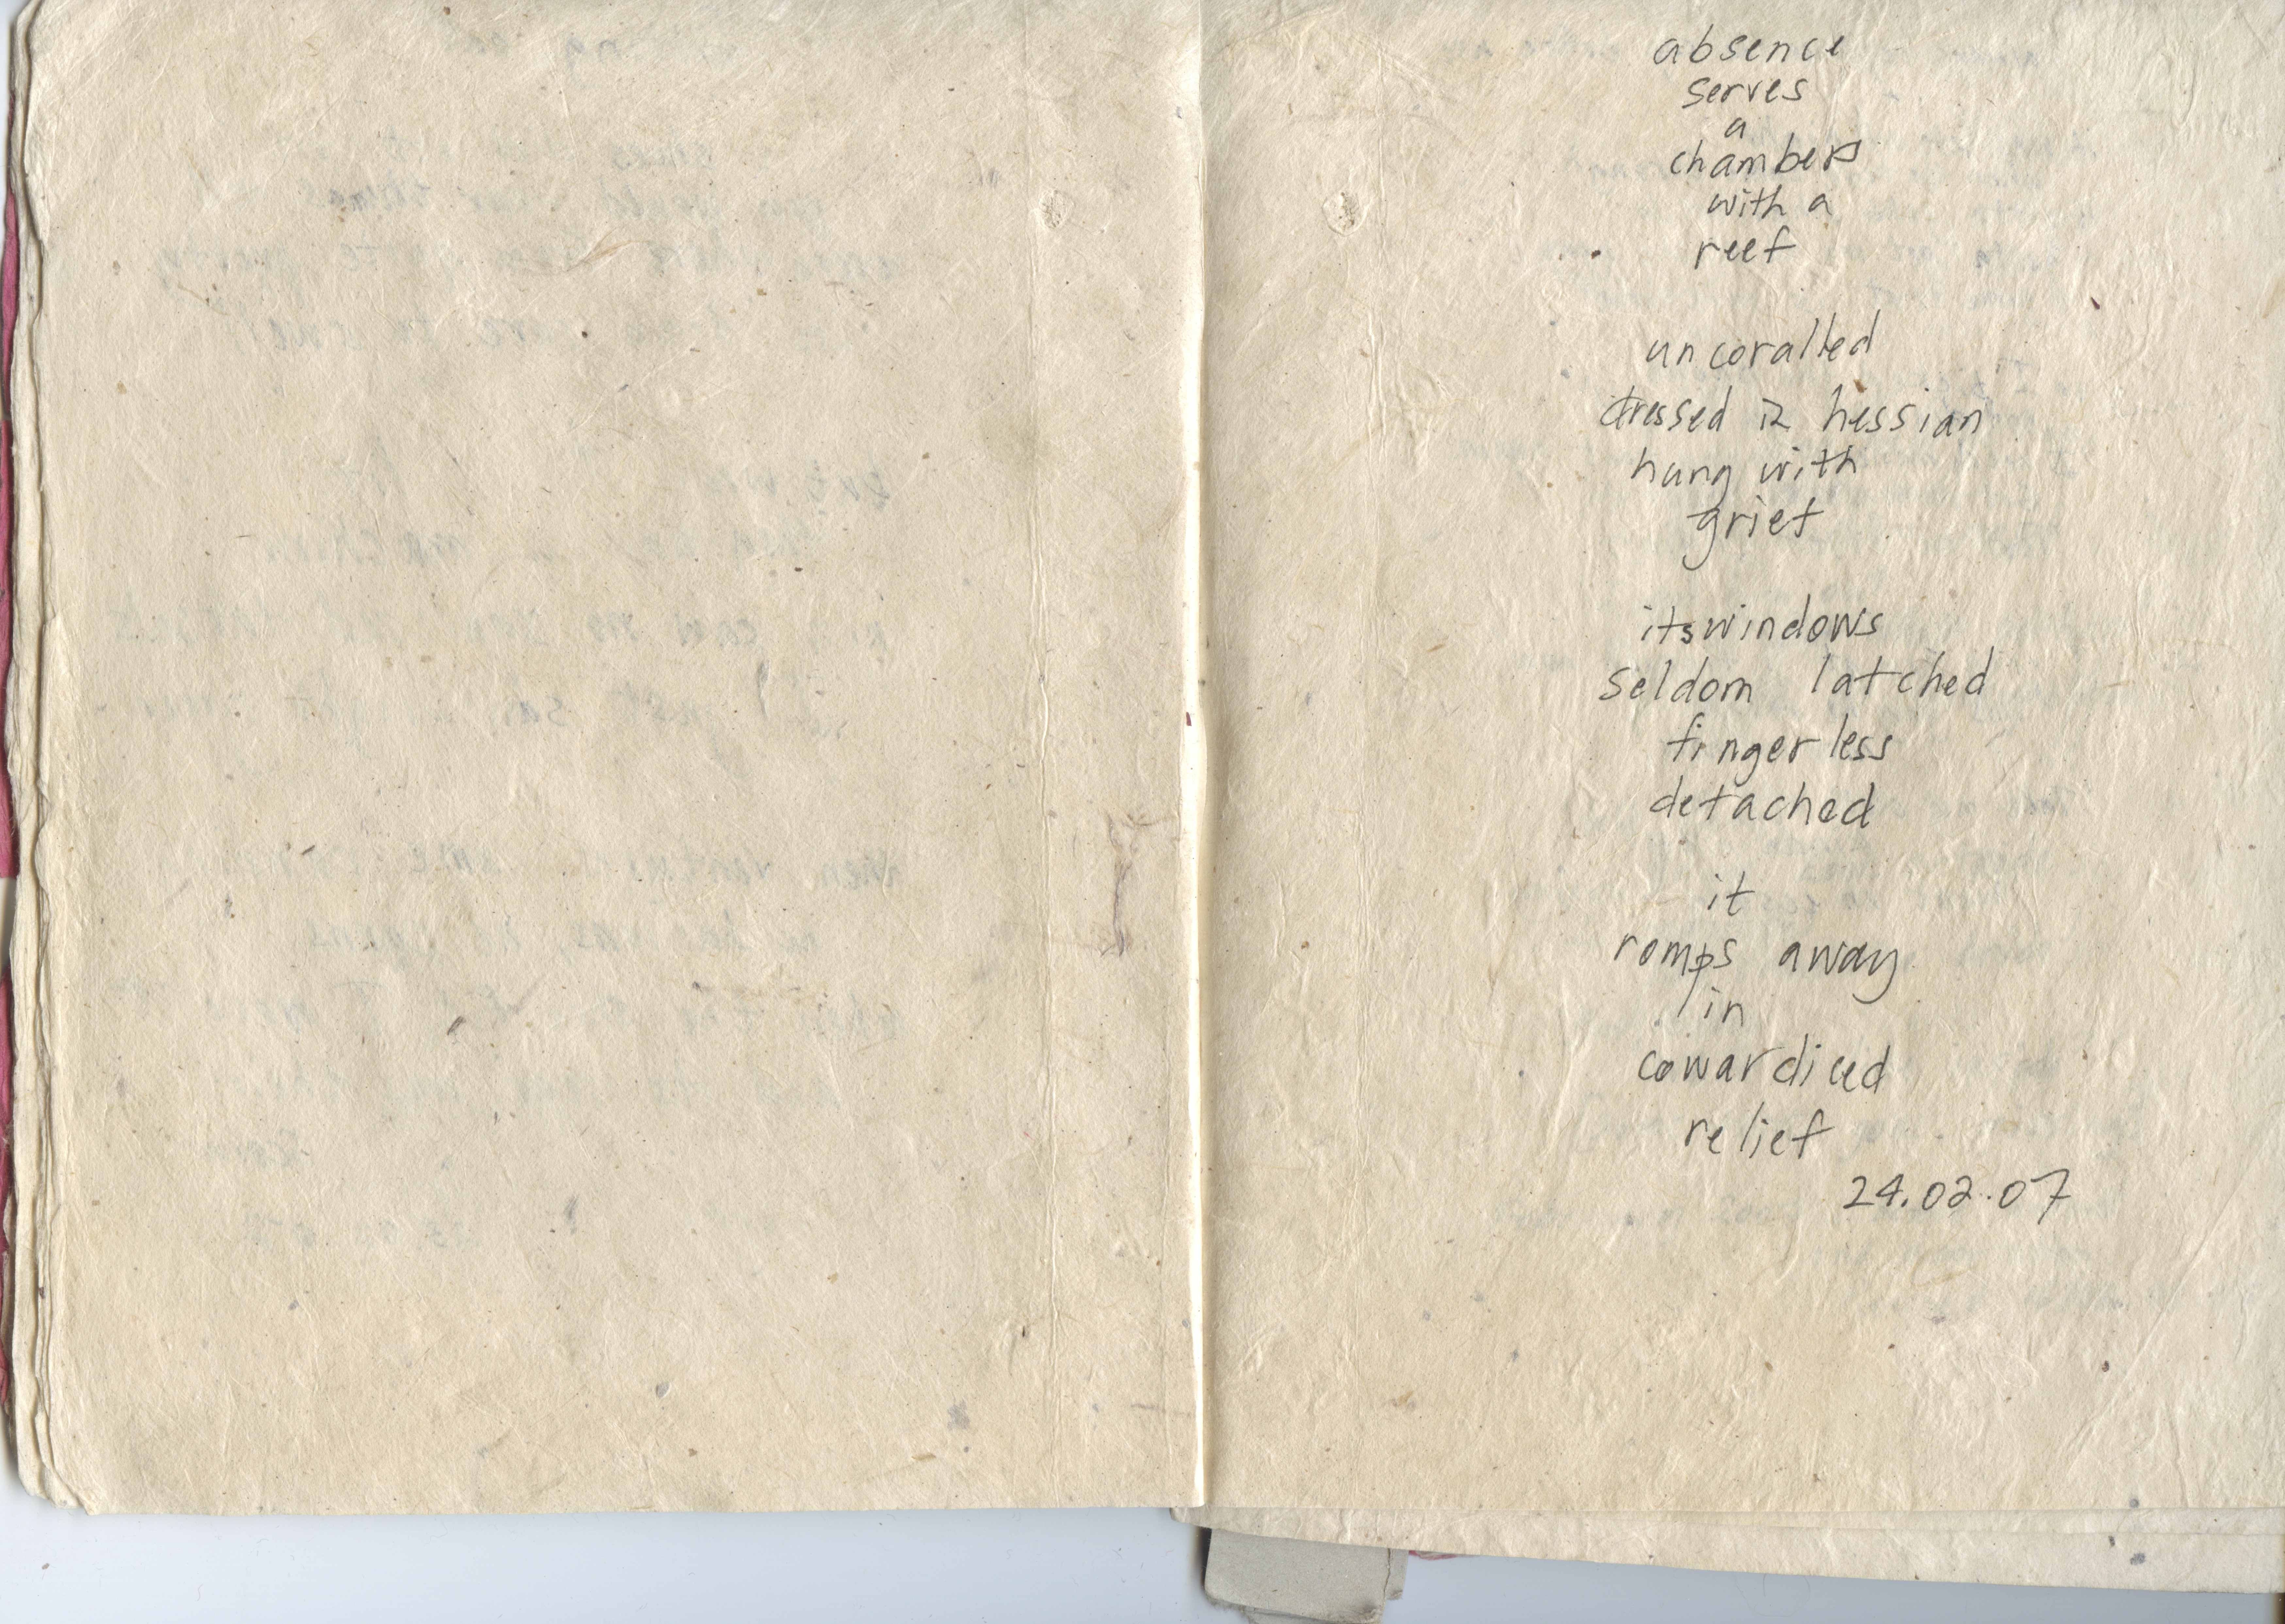 absence
serves
a
chambers
with a
reef
uncoralled
dressed in hessian
hung with
grief
its windows
seldom latched
fingerless
detached
it
romps away
in
cowardiced
relief
24.02.07